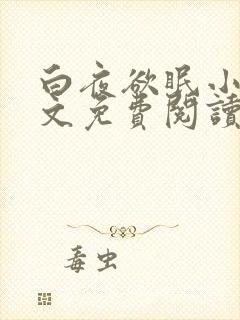 白夜欲眠小
文免費閱讀
毒虫